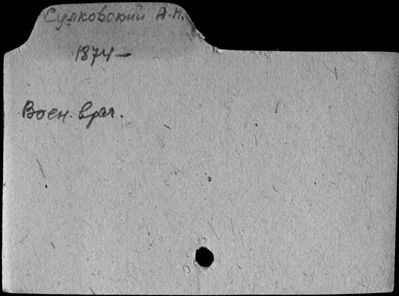 Сулковский А.Н.
1874 —
Воен. врач.